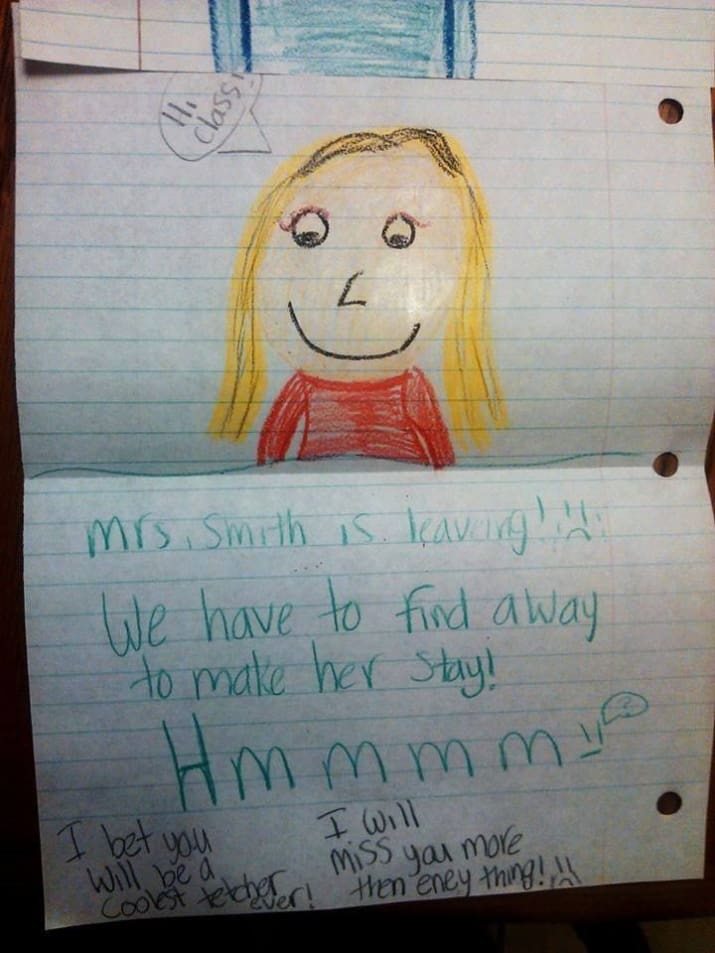 Hi
class!
mrs. smith is leaveing!
We have to find away
to make her stay!
Hmmmmm
?
I bet you
will be a
coolest tetcher
ever!
I will
miss you more
then eney thing!